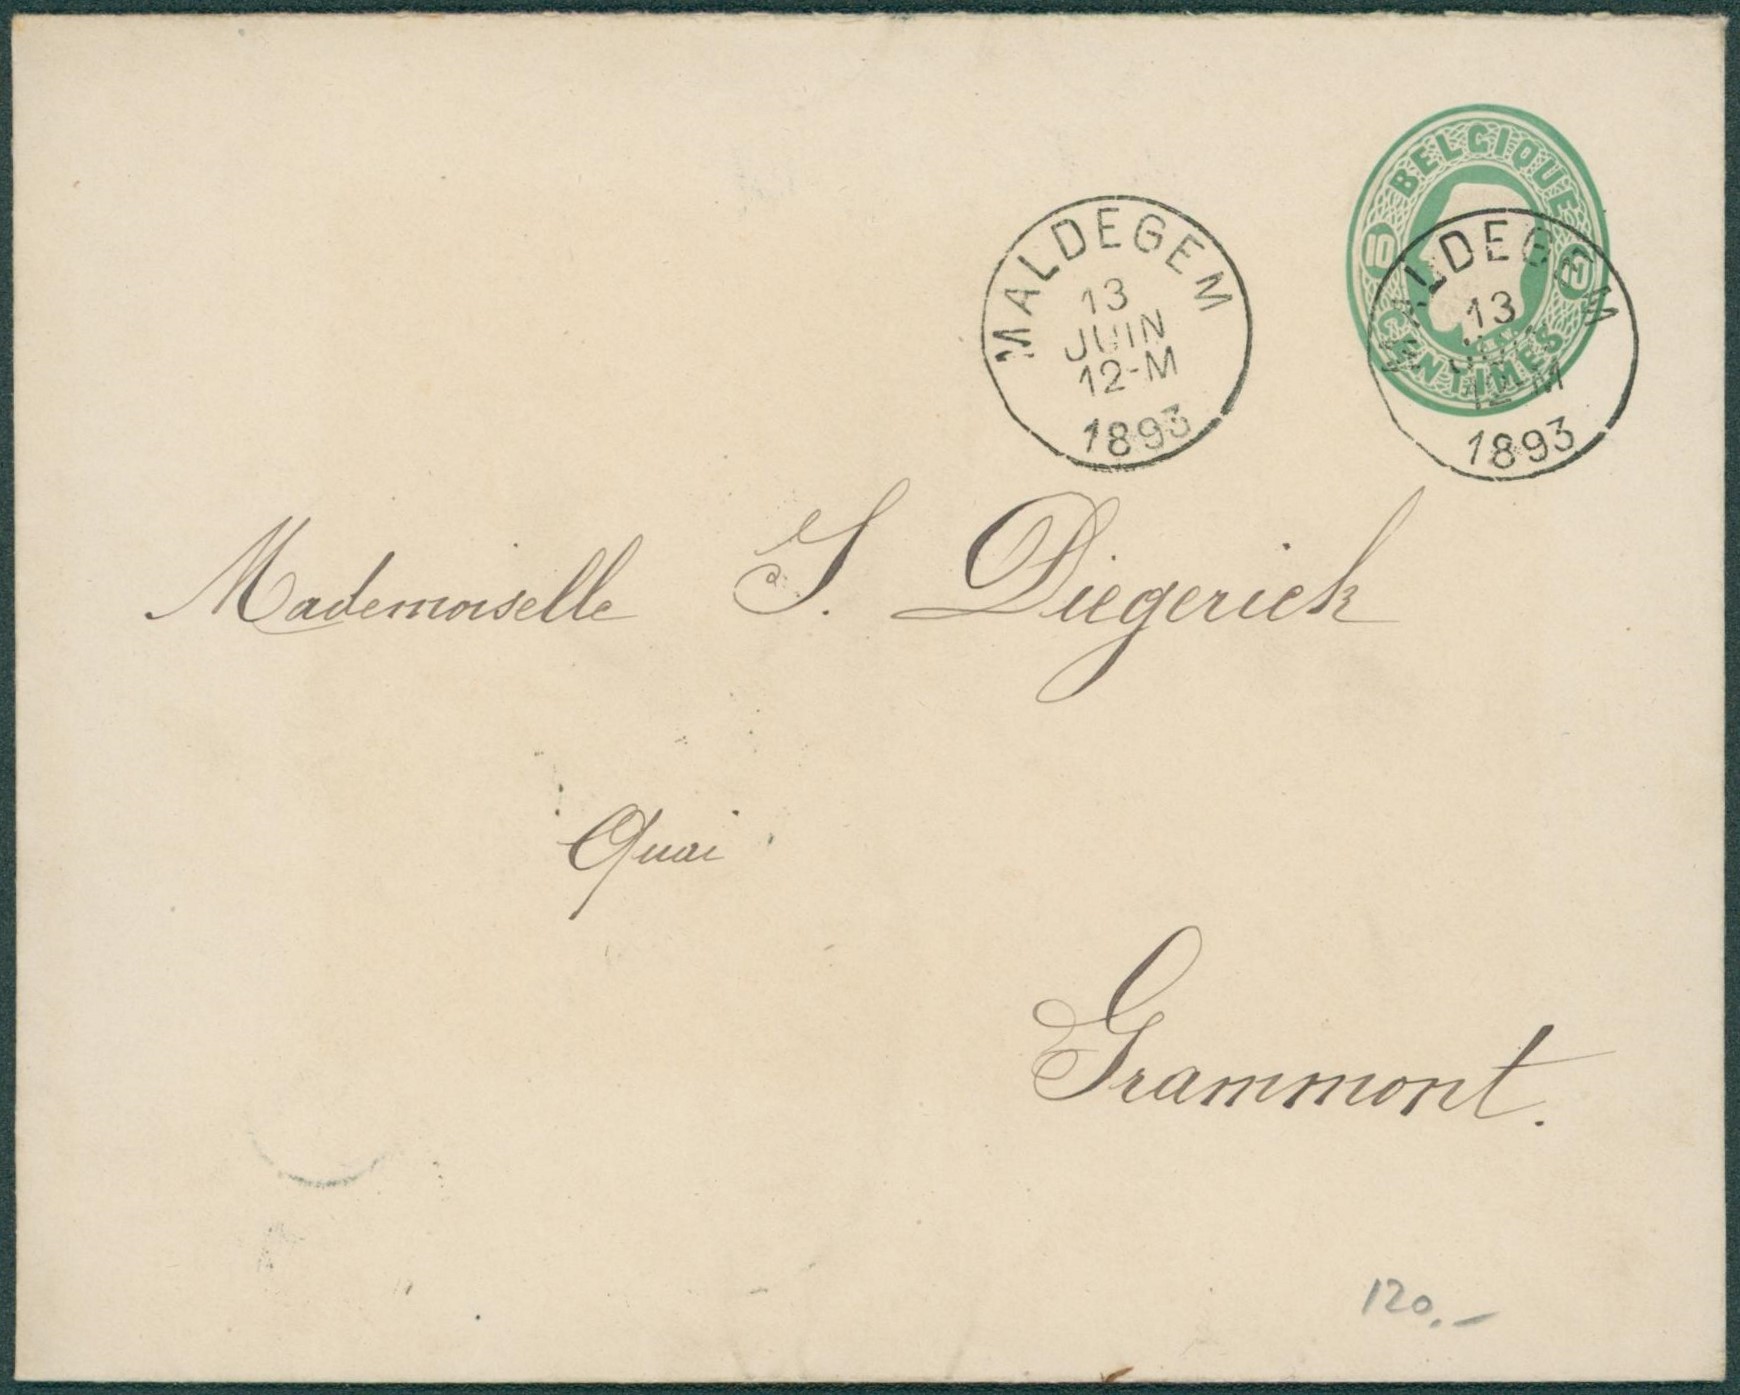 BELGIQUE
10 10
CENTIMES
MALDEGEM
13
JUIN
12-M
1893
MALDEGEM
13
JUIN
12-M
1893
Mademoiselle S. Diegerick
Quai
Grammont.
120.-